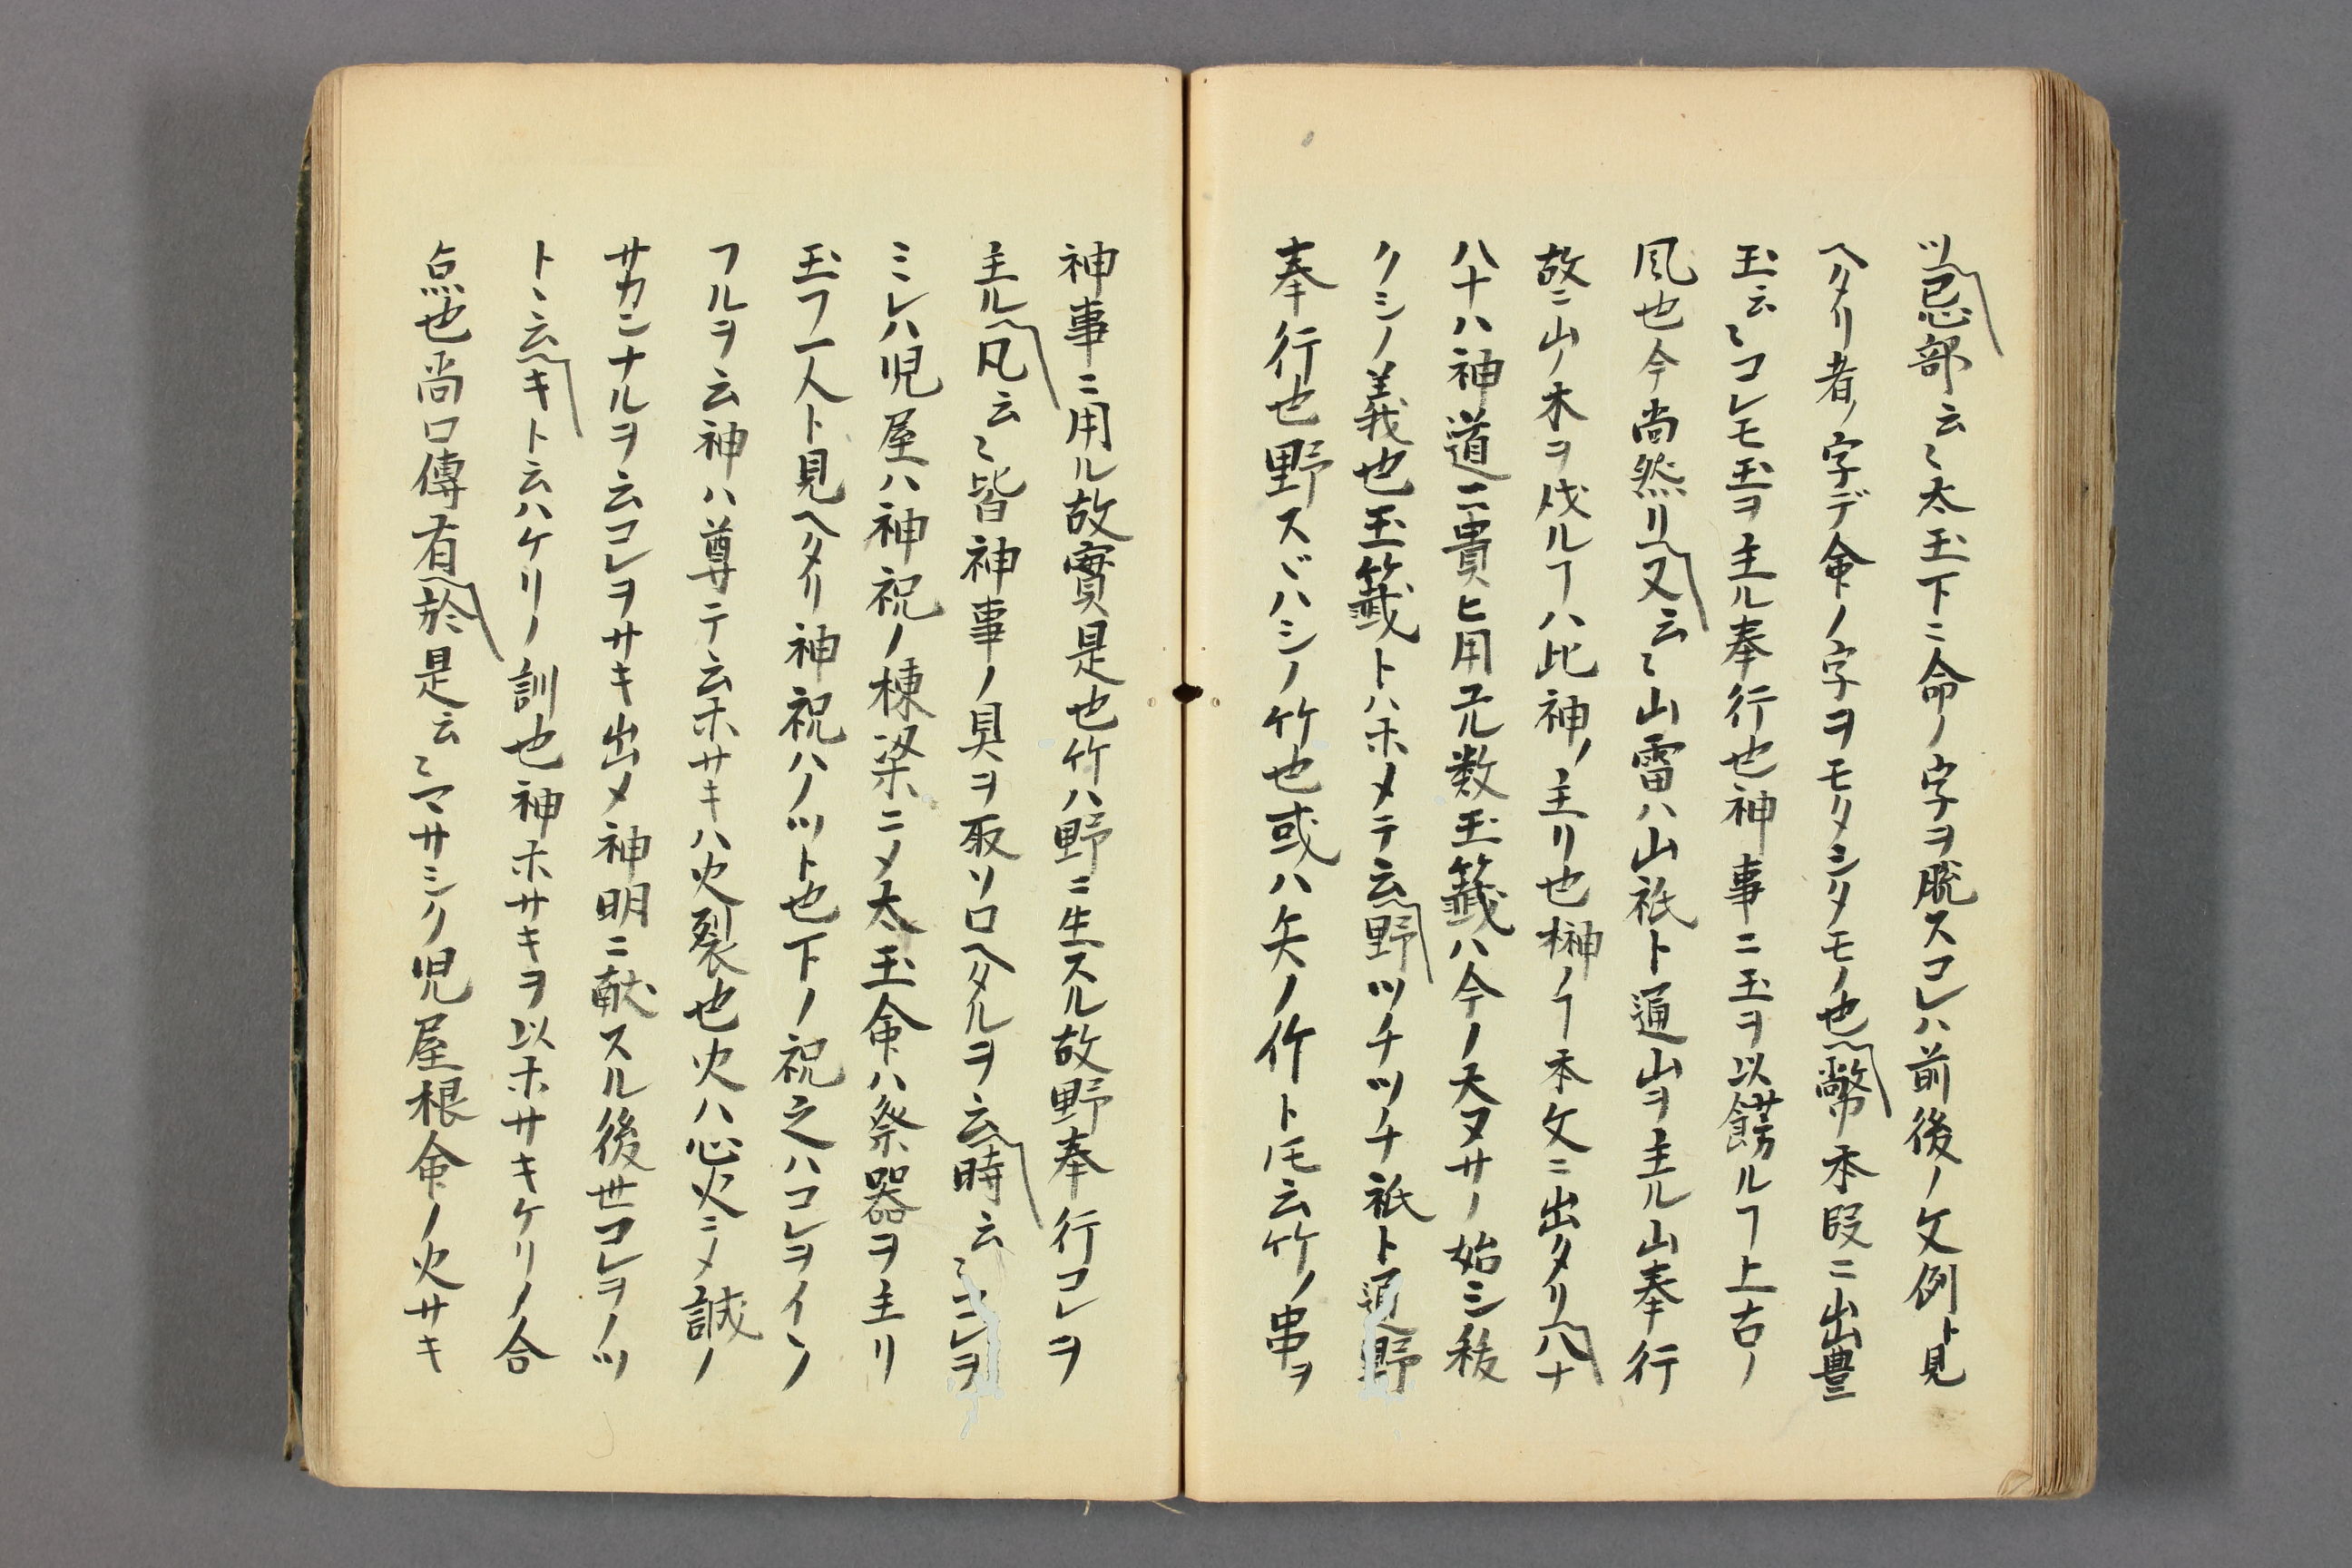 ツ忌部云〻太玉下ニ命ノ字ヲ脱スコレハ前後ノ文例ト見
ヘタリ者ノ字デ命ノ字ヲモタシタモノ也幣本段ニ出豊
玉云〻コレモ玉ヲ主ル奉行也神事ニ玉ヲ以餝ルヿ上古ノ
風也今尚然リ又云〻山雷ハ山祇ト通山ヲ主ル山奉行
故ニ山ノ木ヲ伐ルヿハ此神ノ主リ也榊ノヿ本文ニ出タリ八十
八十ハ神道ニ貴ヒ用元数玉籤ハ今ノ大ヌサノ始シ移
クシノ義也玉籤トハホメテ云野ツチツチ祇ト通野
奉行也野スヾハシノ竹也或ハ矢ノ竹トモ云竹ノ串ヲ
神事ニ用ル故實是也竹ハ野ニ生スル故野奉行コレヲ
主ル凡云〻皆神事ノ具ヲ取ソロヘタルヲ云時云〻コレヲ
ミレハ児屋ハ神祝ノ棟梁ニ〆太玉命ハ祭器ヲ主リ
玉フ一人ト見ヘタリ神祝ハノット也下ノ祝之ハコレヲイノ
フルヲ云神ハ尊テ云ホサキハ火裂也火ハ心火ニ〆誠ノ
サカンナルヲ云コレヲサキ出〆神明ニ献スル後世コレヲノツ
トヽ云キト云ハケリノ訓也神ホサキヲ以ホサキケリノ合
点也尚口傳有於是云〻マサシク児屋根命ノ火サキ